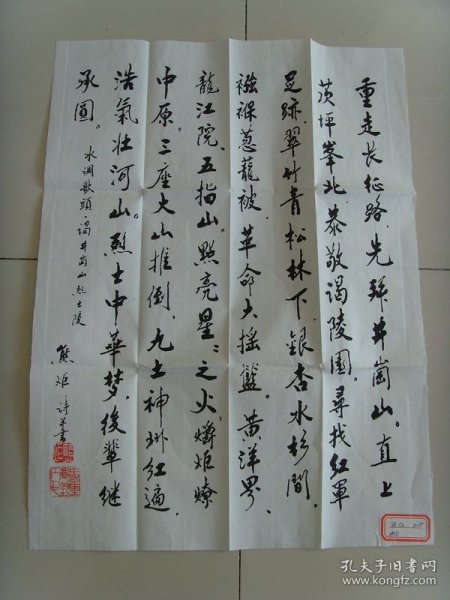 重走长征路，先拜井崗山。直上
茨坪峯北，恭敬谒陵園。尋找红軍
足跡，翠竹青松林下，銀杏水杉間。
襁褓葱蘢被，革命大摇籃。黄洋界，
龍江院，五指山。點亮星：之火爝炬燎
中原。三座大山推倒，九土神州红遍，
浩氣壮河山。烈士中華梦，後輩継
承圆。
水调歌頭·谒井崗山烈士陵
熊炬诗并書
孔夫子旧书网
www.kongfz.com